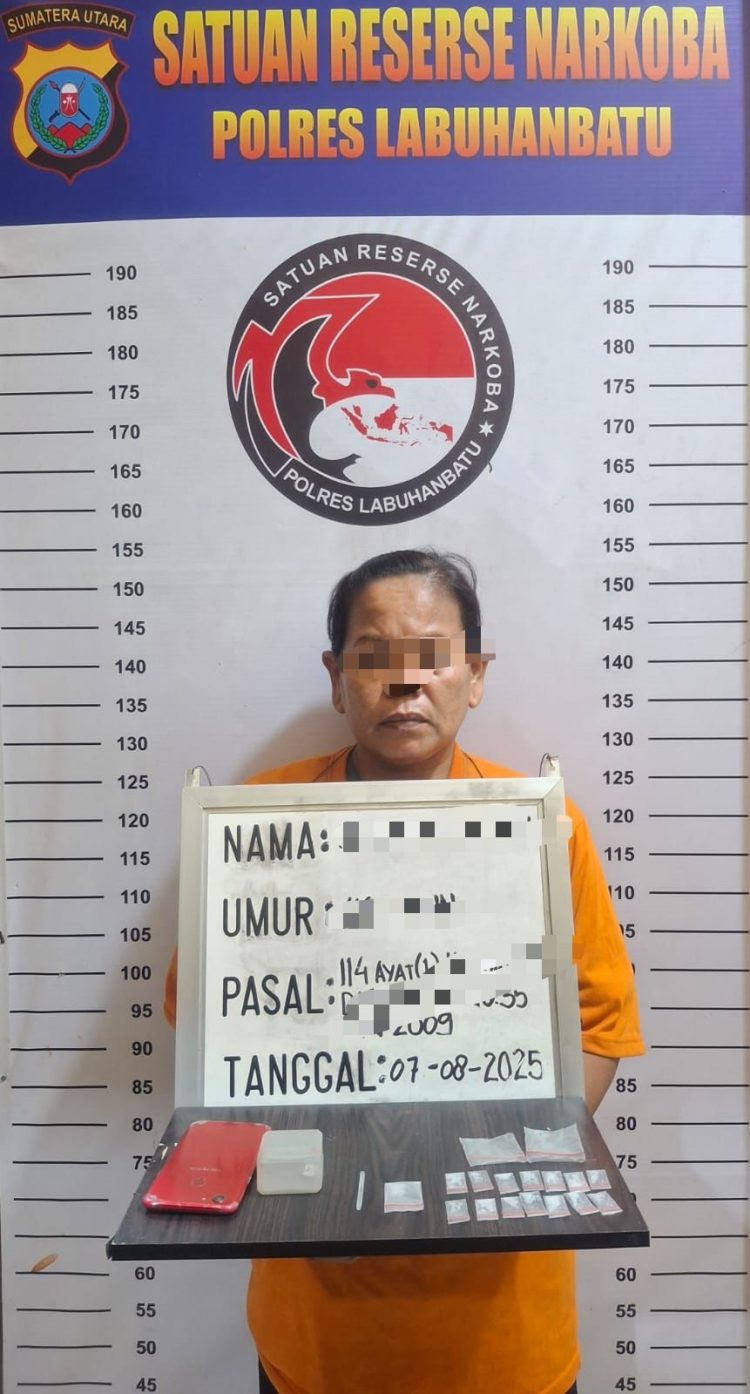 SUMATERA UTARA
SATUAN RESERSE NARKOBA
POLRES LABUHANBATU
SATUAN RESERSE NARKOBA
POLRES LABUHANBATU
190 190
185 185
180 180
175 175
170 170
165 165
160 160
155 155
150 150
145 145
140 140
135 135
130 130
125 125
120 120
115 115
110
105
100
95
90
85 85
80 80
75
60 60
55 55
50 50
45 45
NAMA:
UMUR :
PASAL: 114 AYAT(1)
2009
TANGGAL: 07-08-2025